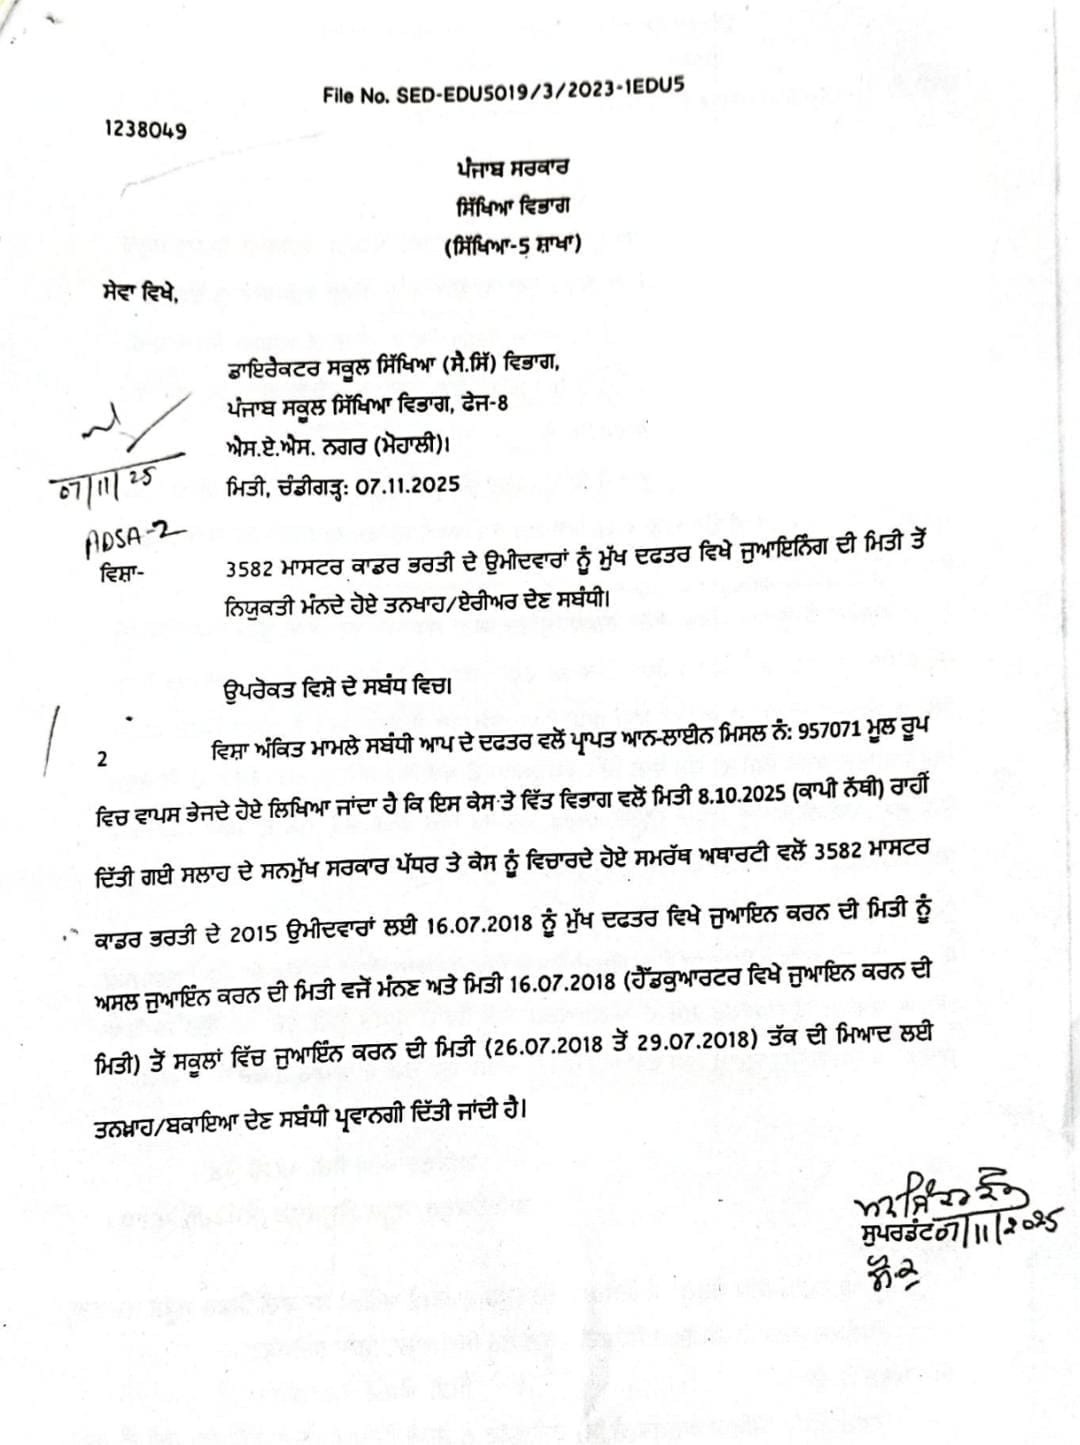 File No. SED-EDU5019/3/2023-1EDU5
1238049
ਪੰਜਾਬ ਸਰਕਾਰ
ਸਿੱਖਿਆ ਵਿਭਾਗ
(ਸਿੱਖਿਆ-5 ਸ਼ਾਖਾ)
ਸੇਵਾ ਵਿਖੇ,
ਡਾਇਰੈਕਟਰ ਸਕੂਲ ਸਿੱਖਿਆ (ਸੈ.ਸਿੱ) ਵਿਭਾਗ,
ਪੰਜਾਬ ਸਕੂਲ ਸਿੱਖਿਆ ਵਿਭਾਗ, ਫੇਜ-8
ਐਸ.ਏ.ਐਸ. ਨਗਰ (ਮੋਹਾਲੀ)।
07/11/25
ਮਿਤੀ, ਚੰਡੀਗੜ੍ਹ: 07.11.2025
ADSA-2
ਵਿਸ਼ਾ-
3582 ਮਾਸਟਰ ਕਾਡਰ ਭਰਤੀ ਦੇ ਉਮੀਦਵਾਰਾਂ ਨੂੰ ਮੁੱਖ ਦਫਤਰ ਵਿਖੇ ਜੁਆਇਨਿੰਗ ਦੀ ਮਿਤੀ ਤੋਂ
ਨਿਯੁਕਤੀ ਮੰਨਦੇ ਹੋਏ ਤਨਖਾਹ/ਏਰੀਅਰ ਦੇਣ ਸਬੰਧੀ।
ਉਪਰੋਕਤ ਵਿਸ਼ੇ ਦੇ ਸਬੰਧ ਵਿਚ।
2 ਵਿਸ਼ਾ ਅੰਕਿਤ ਮਾਮਲੇ ਸਬੰਧੀ ਆਪ ਦੇ ਦਫਤਰ ਵਲੋਂ ਪ੍ਰਾਪਤ ਆਨ-ਲਾਈਨ ਮਿਸਲ ਨੰ: 957071 ਮੂਲ ਰੂਪ
ਵਿਚ ਵਾਪਸ ਭੇਜਦੇ ਹੋਏ ਲਿਖਿਆ ਜਾਂਦਾ ਹੈ ਕਿ ਇਸ ਕੇਸ ਤੇ ਵਿੱਤ ਵਿਭਾਗ ਵਲੋਂ ਮਿਤੀ 8.10.2025 (ਕਾਪੀ ਨੱਥੀ) ਰਾਹੀਂ
ਦਿੱਤੀ ਗਈ ਸਲਾਹ ਦੇ ਸਨਮੁੱਖ ਸਰਕਾਰ ਪੱਧਰ ਤੇ ਕੇਸ ਨੂੰ ਵਿਚਾਰਦੇ ਹੋਏ ਸਮਰੱਥ ਅਥਾਰਟੀ ਵਲੋਂ 3582 ਮਾਸਟਰ
ਕਾਡਰ ਭਰਤੀ ਦੇ 2015 ਉਮੀਦਵਾਰਾਂ ਲਈ 16.07.2018 ਨੂੰ ਮੁੱਖ ਦਫਤਰ ਵਿਖੇ ਜੁਆਇਨ ਕਰਨ ਦੀ ਮਿਤੀ ਨੂੰ
ਅਸਲ ਜੁਆਇੰਨ ਕਰਨ ਦੀ ਮਿਤੀ ਵਜੋਂ ਮੰਨਣ ਅਤੇ ਮਿਤੀ 16.07.2018 (ਹੈੱਡਕੁਆਰਟਰ ਵਿਖੇ ਜੁਆਇਨ ਕਰਨ ਦੀ
ਮਿਤੀ) ਤੋਂ ਸਕੂਲਾਂ ਵਿੱਚ ਜੁਆਇੰਨ ਕਰਨ ਦੀ ਮਿਤੀ (26.07.2018 ਤੋਂ 29.07.2018) ਤੱਕ ਦੀ ਮਿਆਦ ਲਈ
ਤਨਖ਼ਾਹ/ਬਕਾਇਆ ਦੇਣ ਸਬੰਧੀ ਪ੍ਰਵਾਨਗੀ ਦਿੱਤੀ ਜਾਂਦੀ ਹੈ।
ਸੁਪਰਡੰਟ 07/11/2025